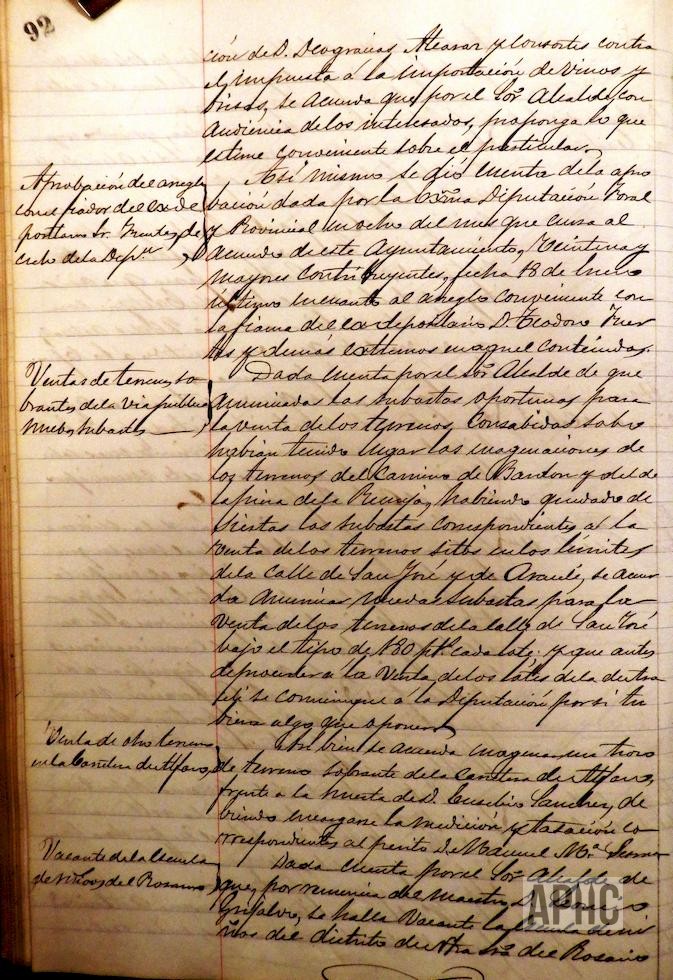 92
ción de D. Deogracias Alcazar y consortes contra
el impuesto á la importación de vinos y
brisas, se acuerda que por el Sor. Alcalde, con
audiencia de los interesados, proponga lo que
estime conveniente sobre el particular.
Aprobación del arreglo
con el fiador del ex-de
positario Sr. Fuertes, de
creto de la Depn.
Asi mismo se dió cuenta de la apro
bación dada por la Exma Diputación Foral
y Provincial en ocho del mes que cursa al
acuerdo de este Ayuntamiento, Veintena y
mayores contribuyentes, fecha 18 de Enero
último en cuanto al arreglo conveniente con
la fianza del ex depositario D. Teodoro Fuer
tes y demás extremos en aquel contenidos.
Ventas de terrenos so
brantes de la via publica
nuevas subastas
Dada cuenta por el Sor. Alcalde de que
anunciadas las subastas oportunas para
la venta de los terrenos consabidos sobre
habian tenido lugar las enagenaciones de
los terrenos del Camino de y del de
la de la habiendo quedado de
siertas las subastas correspondientes a la
venta de los terrenos sitos en los límites
de la calle de San José y de se acuer
da anunciar nuevas subastas para la
venta de los terrenos de la calle de San José
bajo el tipo de 180 pts. cada lote y que antes
de proceder á la venta de los lotes de la
se comunique á la Diputación por si tu
biera algo que oponer.
Venta de otro terreno
en la Carretera de Alfaro,
Tambien se acuerda enagenar un trozo
de terreno sobrante de la carretera de Alfaro,
frente a la huerta de D. Eusebio Sanchez, de
biendo encargarse la medición y tasación co
rrespondientes al perito D. Manuel Mª.
Vacante de la Escuela
de niños del Rosario
Dada cuenta por el Sor. Alcalde de
que, por renuncia del maestro D.
Grijalvo, se halla vacante la escuela de ni
ños del distrito de Ntra Sra del Rosario
APHC